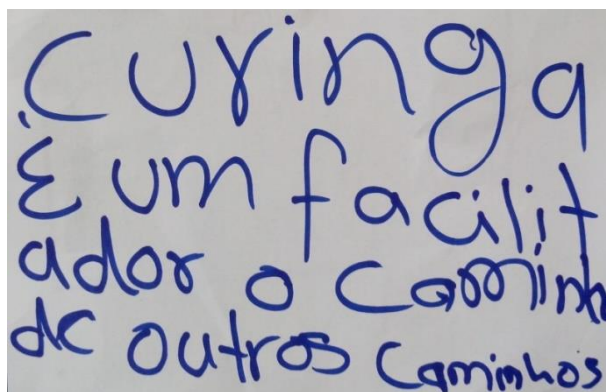 Curinga
É um facilit
ador o caminh
de outros caminhos